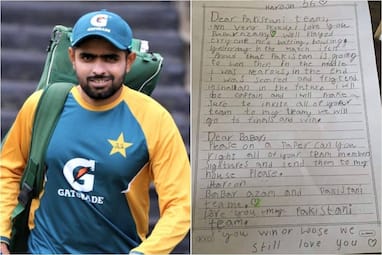 G
GATORADE
HAROON 56
Dear Pakistani team,
I am very proud love you
Babar azam well played
evryone nice batting, bowling
Yesterday in the match I felt
proud that Pakistan is going
to win then in the middle
I was nearous, in the end
I was worried and frigtend
inshallah in the future I will
be captain and I will make
sure to invite all of your
team to my team, we will
go to finals and win.
Dear Babar,
Please on a paper can you
right all of your team member
signtures and send them to my
house please.
Haroon
Babar azam and Pakistani
teame.
Love you Pakistani
team.
you win or loose we
still love you